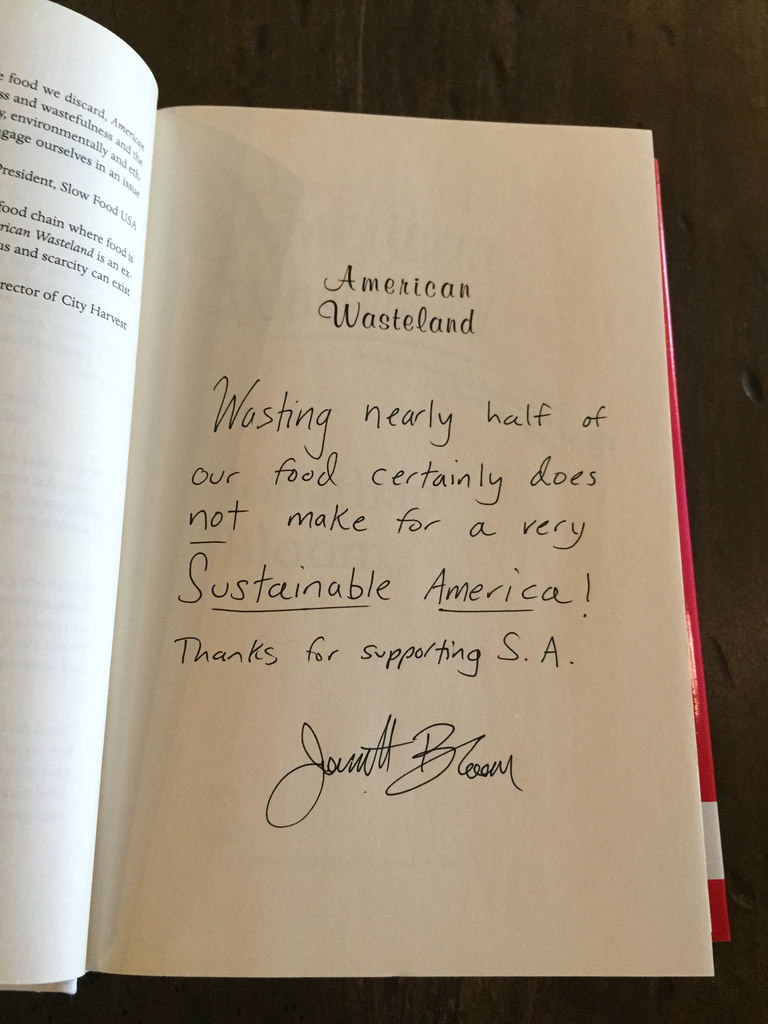 e food we discard, American
ss and wastefulness and the
y, environmentally and eth-
gage ourselves in an issue
President, Slow Food USA
food chain where food is
rican Wasteland is an ex-
ns and scarcity can exist
rector of City Harvest
American
Wasteland
Wasting nearly half of
our food certainly does
not make for a very
Sustainable America!
Thanks for supporting S.A.
Jonath Bloom